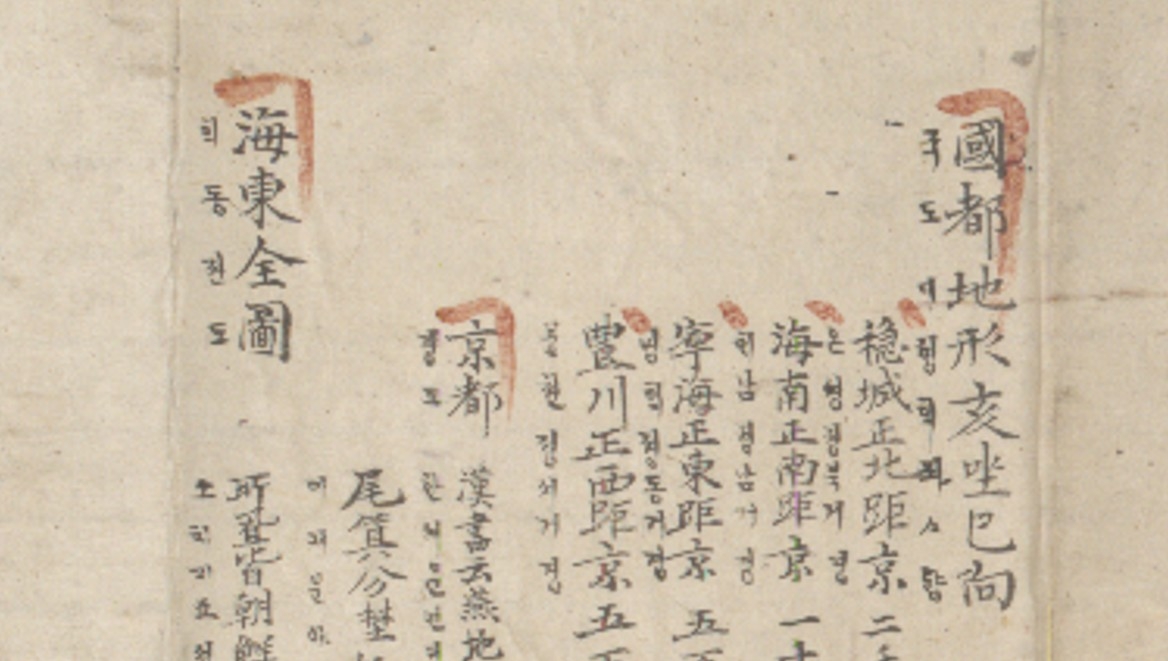 國都地形亥坐巳向
국도디형희좌사향
穩城正北距京二千
온셩졍북거경
海南正南距京一千
히남졍남거경
寧海正東距京五百
녕히졍동거경
豊川正西距京五百
풍쳔졍셔거경
京都
경도
漢書云燕地
한셔운연디
尾箕分野
미긔분야
海東全圖
희동젼도
朝鮮